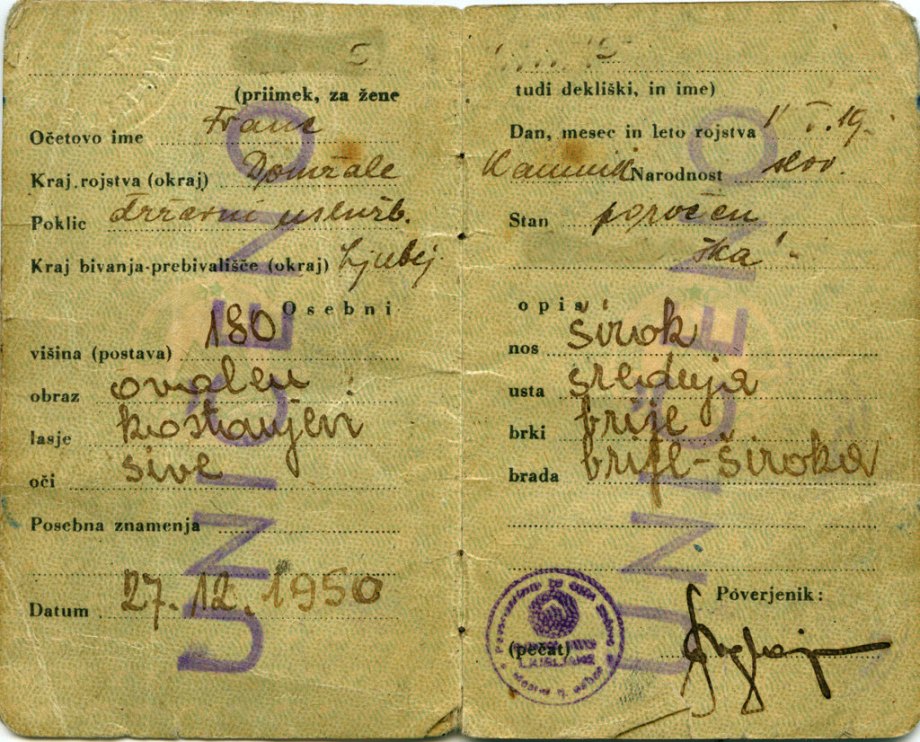 (priimek, za žene
Očetovo ime Franc
Kraj rojstva (okraj) Domžale
Poklic državni uslužb.
Kraj bivanja-prebivališče (okraj) Ljublj.
Osebni
višina (postava) 180
obraz ovalen
lasje kostanjevi
oči sive
Posebna znamenja
Datum 27.12.1950
UNIČENO
tudi dekliški, in ime)
Dan, mesec in leto rojstva
Kamnik Narodnost slov.
Stan poročen
opis
nos širok
usta srednja
brki brije
brada brije-široka
Poverjenik:
(pečat)
LJUBLJANE
UNIČENO